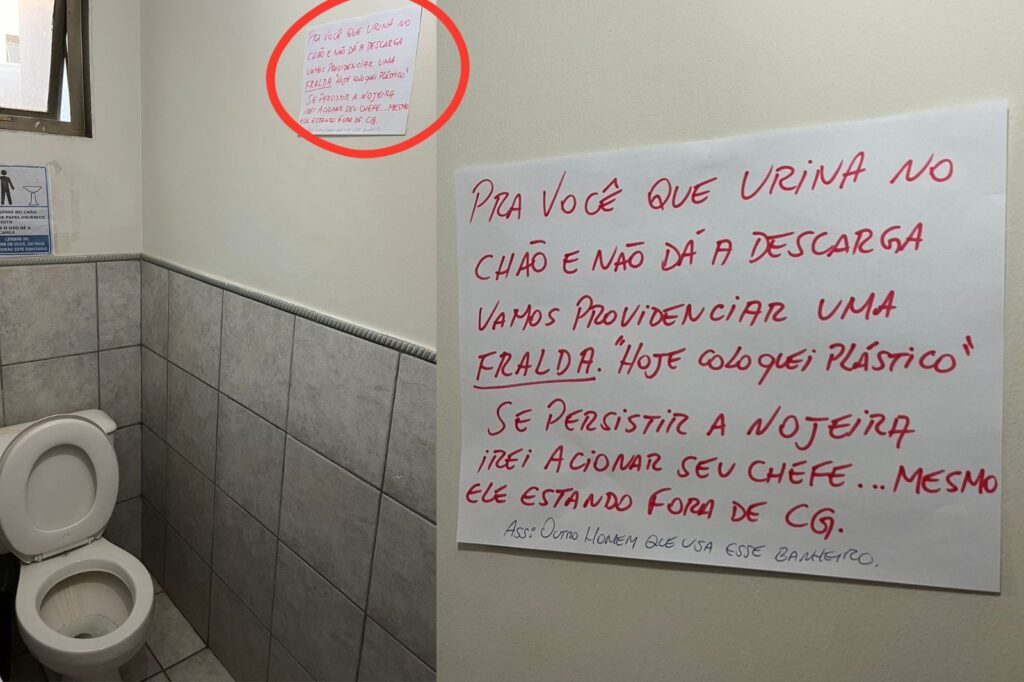 PRA VOCÊ QUE URINA NO
CHÃO E NÃO DÁ A DESCARGA
VAMOS PROVIDENCIAR UMA
FRALDA. "HOJE COLOQUEI PLÁSTICO"
SE PERSISTIR A NOJEIRA
IREI ACIONAR SEU CHEFE... MESMO
ELE ESTANDO FORA DE CG.
NO CHÃO
PAPEL HIGIÊNICO
O USO DÊ A
LEMBRE-SE:
DE VOCÊ, OUTROS
ESTE SANITÁRIO
PRA VOCÊ QUE URINA NO
CHÃO E NÃO DÁ A DESCARGA
VAMOS PROVIDENCIAR UMA
FRALDA. "HOJE COLOQUEI PLÁSTICO"
SE PERSISTIR A NOJEIRA
IREI ACIONAR SEU CHEFE... MESMO
ELE ESTANDO FORA DE CG.
ASS: OUTRO HOMEM QUE USA ESSE BANHEIRO.